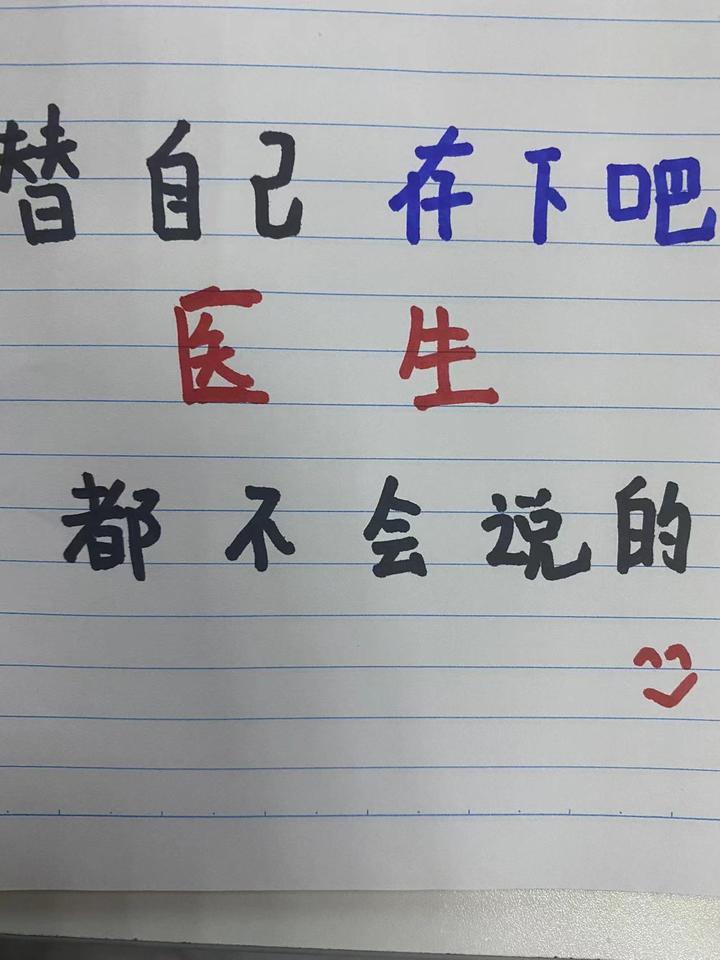 替自己存下吧
医生
都不会说的